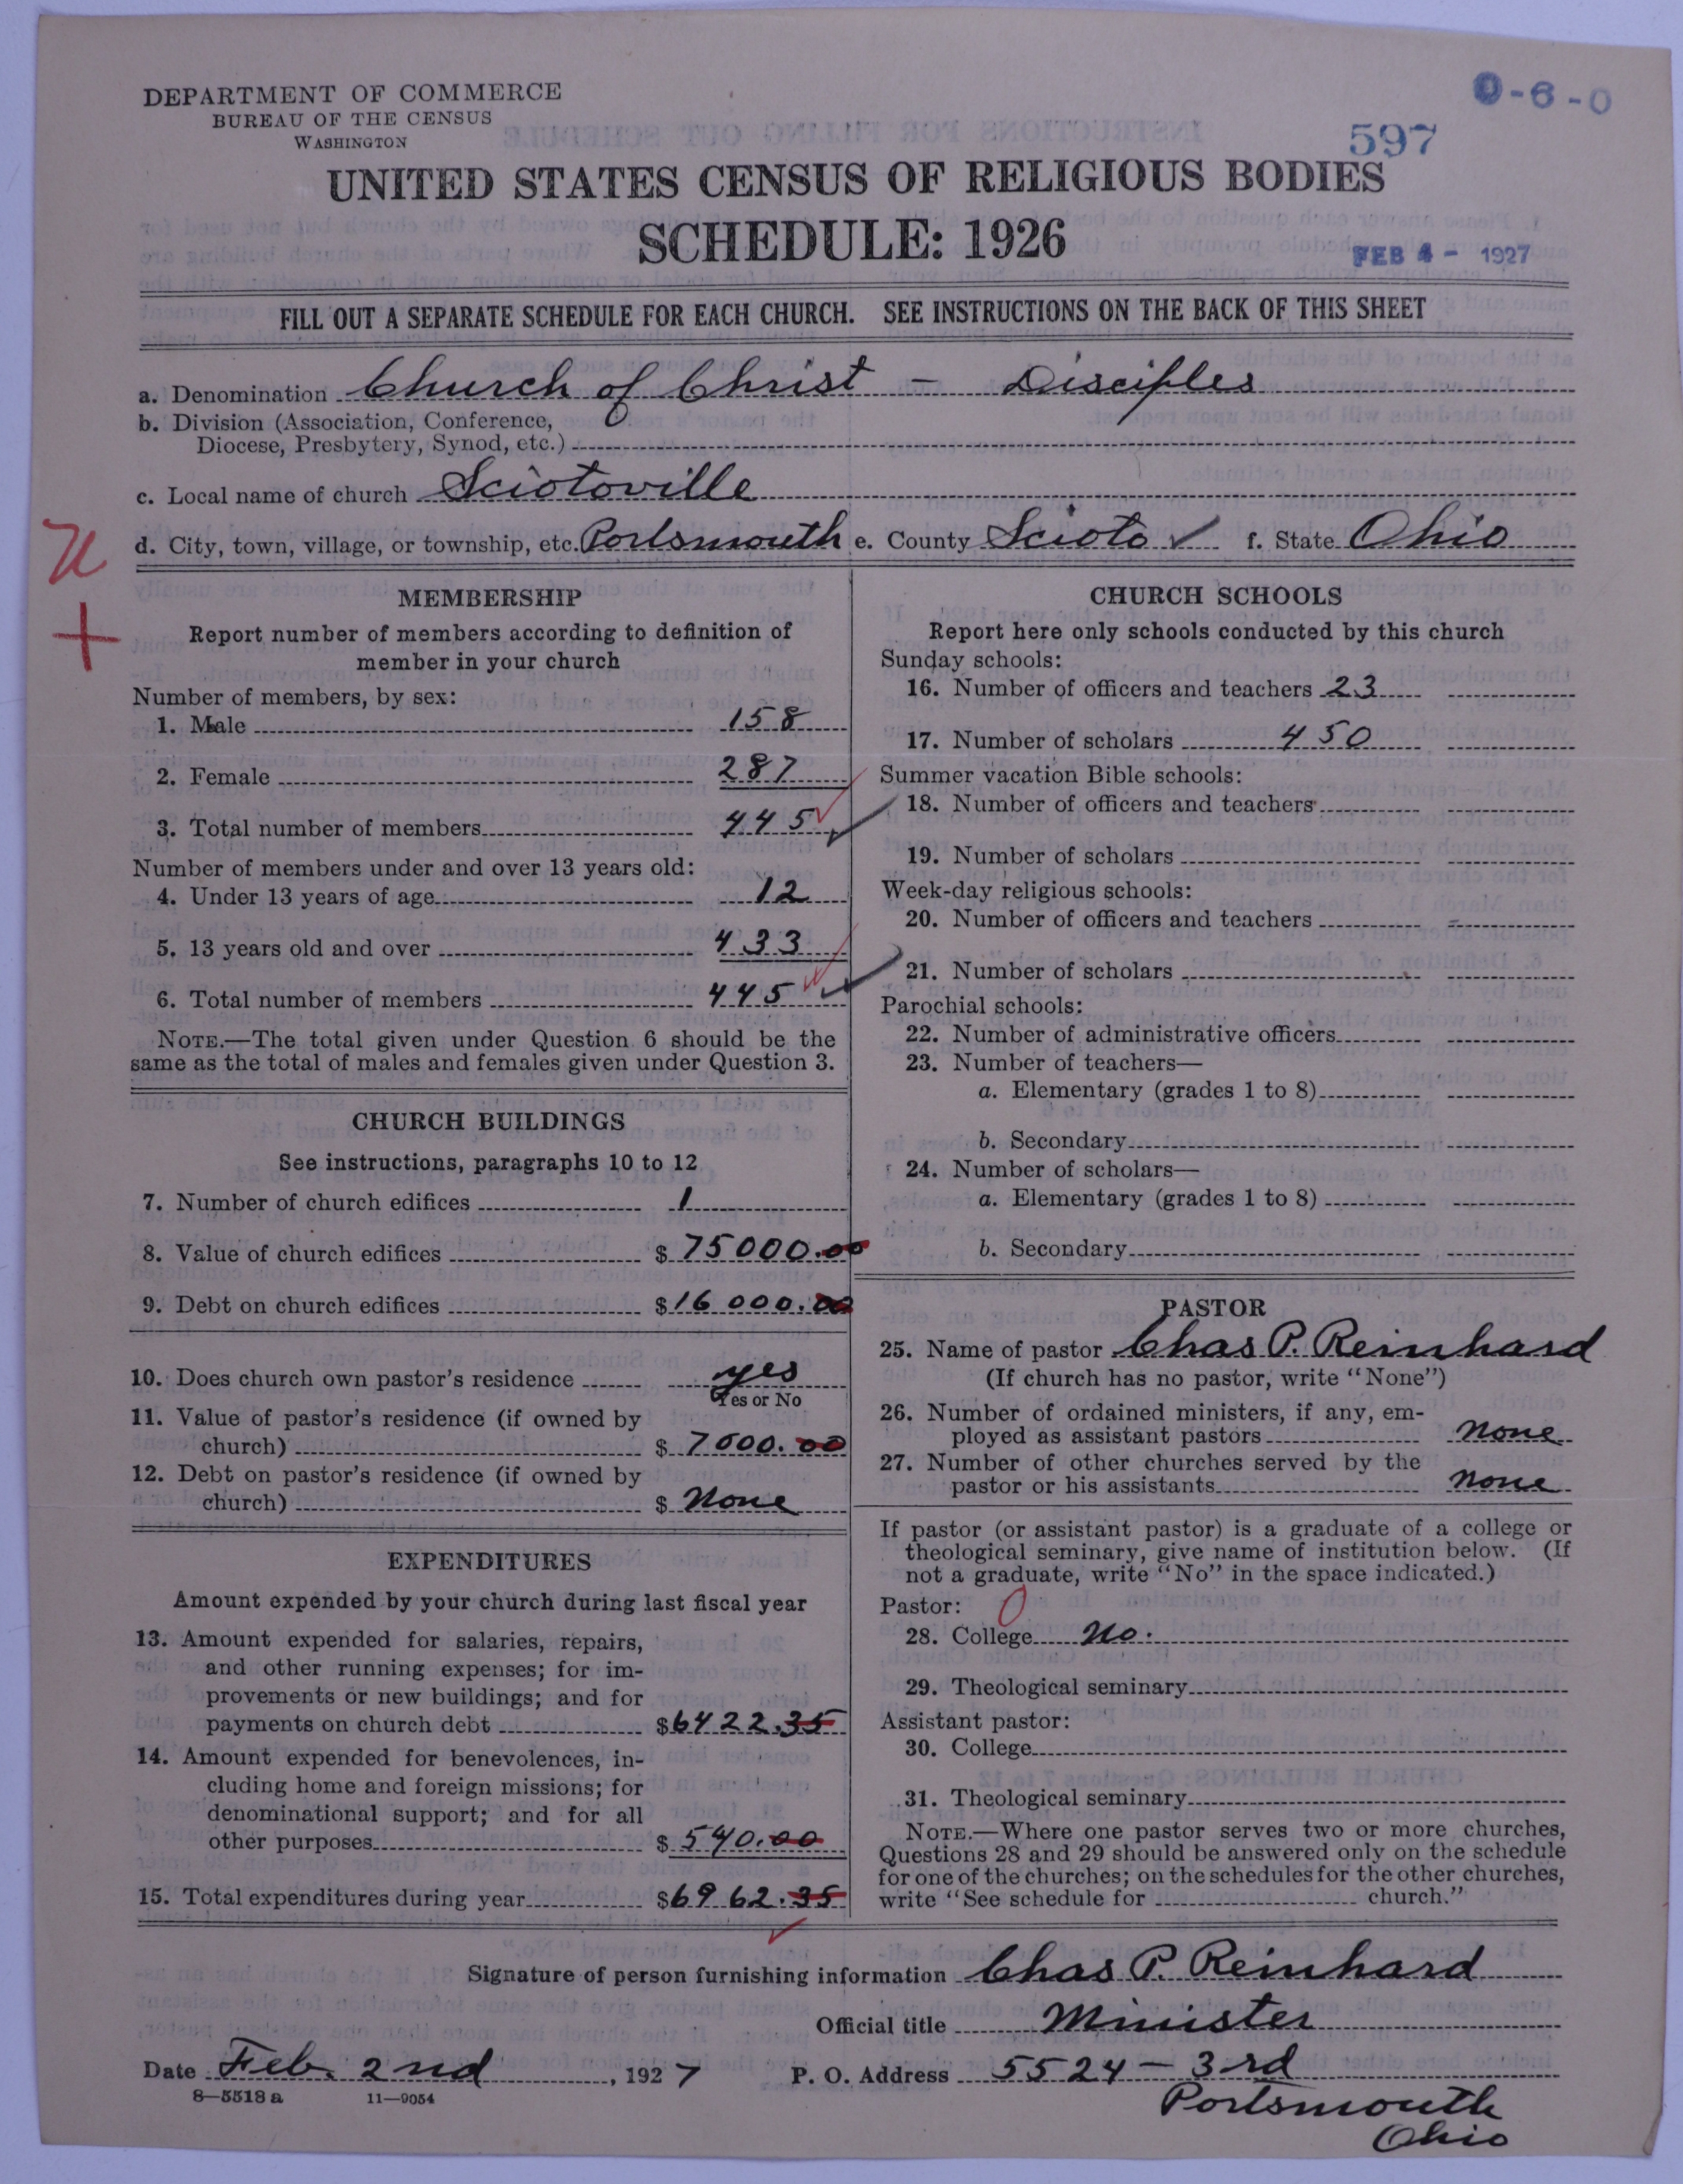 DEPARTMENT OF COMMERCE
BUREAU OF THE CENSUS
WASHINGTON
0-6-0
597
UNITED STATES CENSUS OF RELIGIOUS BODIES
SCHEDULE: 1926
FEB 4 - 1927
FILL OUT A SEPARATE SCHEDULE FOR EACH CHURCH. SEE INSTRUCTIONS ON THE BACK OF THIS SHEET
a. Denomination Church of Christ - Disciples
b. Division (Association, Conference,
Diocese, Presbytery, Synod, etc.)
c. Local name of church Sciotoville
d. City, town, village, or township, etc. Portsmouth e. County Scioto ✓ f. State Ohio
MEMBERSHIP
Report number of members according to definition of
member in your church
Number of members, by sex:
1. Male 158
2. Female 287
3. Total number of members 445
Number of members under and over 13 years old:
4. Under 13 years of age 12
5. 13 years old and over 433
6. Total number of members 445
NOTE.—The total given under Question 6 should be the
same as the total of males and females given under Question 3.
CHURCH BUILDINGS
See instructions, paragraphs 10 to 12
7. Number of church edifices 1
8. Value of church edifices $ 75000.00
9. Debt on church edifices $16000.00
10. Does church own pastor's residence yes
Yes or No
11. Value of pastor's residence (if owned by
church) $ 7000.00
12. Debt on pastor's residence (if owned by
church) $ None
EXPENDITURES
Amount expended by your church during last fiscal year
13. Amount expended for salaries, repairs,
and other running expenses; for im-
provements or new buildings; and for
payments on church debt $6422.35
14. Amount expended for benevolences, in-
cluding home and foreign missions; for
denominational support; and for all
other purposes $ 540.00
15. Total expenditures during year $6962.35
CHURCH SCHOOLS
Report here only schools conducted by this church
Sunday schools:
16. Number of officers and teachers 23
17. Number of scholars 450
Summer vacation Bible schools:
18. Number of officers and teachers
19. Number of scholars
Week-day religious schools:
20. Number of officers and teachers
21. Number of scholars
Parochial schools:
22. Number of administrative officers
23. Number of teachers—
a. Elementary (grades 1 to 8)
b. Secondary
24. Number of scholars—
a. Elementary (grades 1 to 8)
b. Secondary
PASTOR
25. Name of pastor Chas P. Reinhard
(If church has no pastor, write "None")
26. Number of ordained ministers, if any, em-
ployed as assistant pastors None
27. Number of other churches served by the
pastor or his assistants None
If pastor (or assistant pastor) is a graduate of a college or
theological seminary, give name of institution below. (If
not a graduate, write "No" in the space indicated.)
Pastor: 0
28. College No.
29. Theological seminary
Assistant pastor:
30. College
31. Theological seminary
NOTE.—Where one pastor serves two or more churches,
Questions 28 and 29 should be answered only on the schedule
for one of the churches; on the schedules for the other churches,
write "See schedule for church."
Signature of person furnishing information Chas P. Reinhard
Official title Minister
Date Feb. 2nd, 1927 P. O. Address 5524 - 3rd
8—5518 a 11—9054
Portsmouth
Ohio